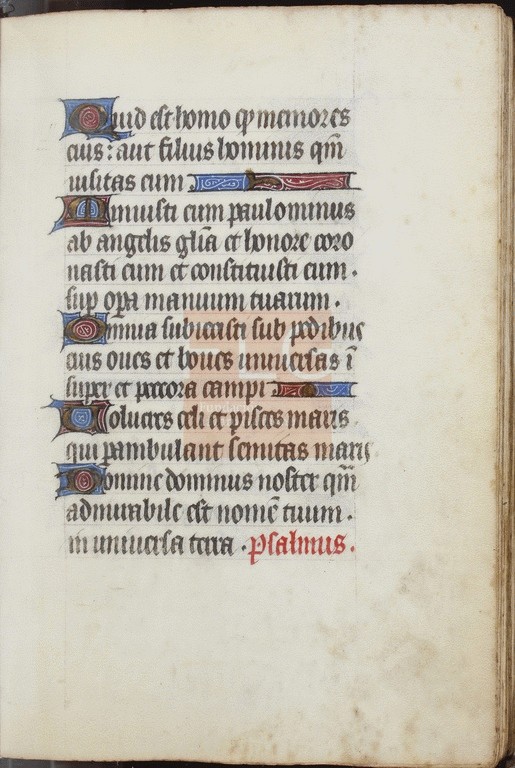 Quid est homo qp memores
eius: aut filius hominis qm̄
uisitas eum
Minuisti eum paulominus
ab angelis gl̄ia et honore coro
nasti eum et constituisti eum.
sup opa manuum tuarum.
Omnia subiecisti sub pedibus
eius oues et boues uniuersas ī
super et peccora campi
Uolucres celi et pisces maris
qui pambulant semitas maris
Domine dominus noster qm̄
admirabile est nomē tuum.
in uniuersa terra. psalmus.